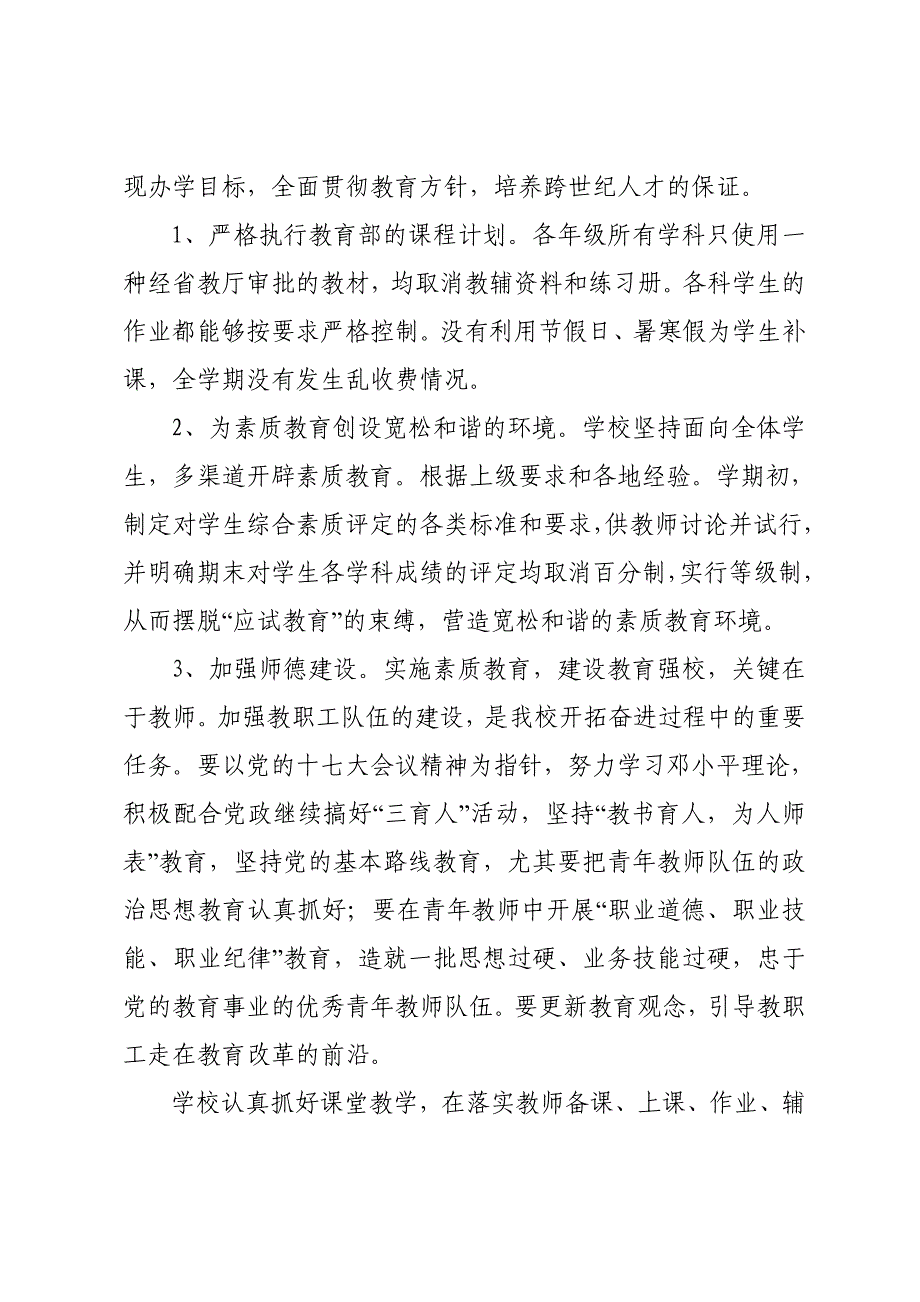 现办学目标，全面贯彻教育方针，培养跨世纪人才的保证。
1、严格执行教育部的课程计划。各年级所有学科只使用一
种经省教厅审批的教材，均取消教辅资料和练习册。各科学生的
作业都能够按要求严格控制。没有利用节假日、暑寒假为学生补
课，全学期没有发生乱收费情况。
2、为素质教育创设宽松和谐的环境。学校坚持面向全体学
生，多渠道开辟素质教育。根据上级要求和各地经验。学期初，
制定对学生综合素质评定的各类标准和要求，供教师讨论并试行，
并明确期末对学生各学科成绩的评定均取消百分制，实行等级制，
从而摆脱“应试教育”的束缚，营造宽松和谐的素质教育环境。
3、加强师德建设。实施素质教育，建设教育强校，关键在
于教师。加强教职工队伍的建设，是我校开拓奋进过程中的重要
任务。要以党的十七大会议精神为指针，努力学习邓小平理论，
积极配合党政继续搞好“三育人”活动，坚持“教书育人，为人师
表”教育，坚持党的基本路线教育，尤其要把青年教师队伍的政
治思想教育认真抓好；要在青年教师中开展“职业道德、职业技
能、职业纪律”教育，造就一批思想过硬、业务技能过硬，忠于
党的教育事业的优秀青年教师队伍。要更新教育观念，引导教职
工走在教育改革的前沿。
学校认真抓好课堂教学，在落实教师备课、上课、作业、辅